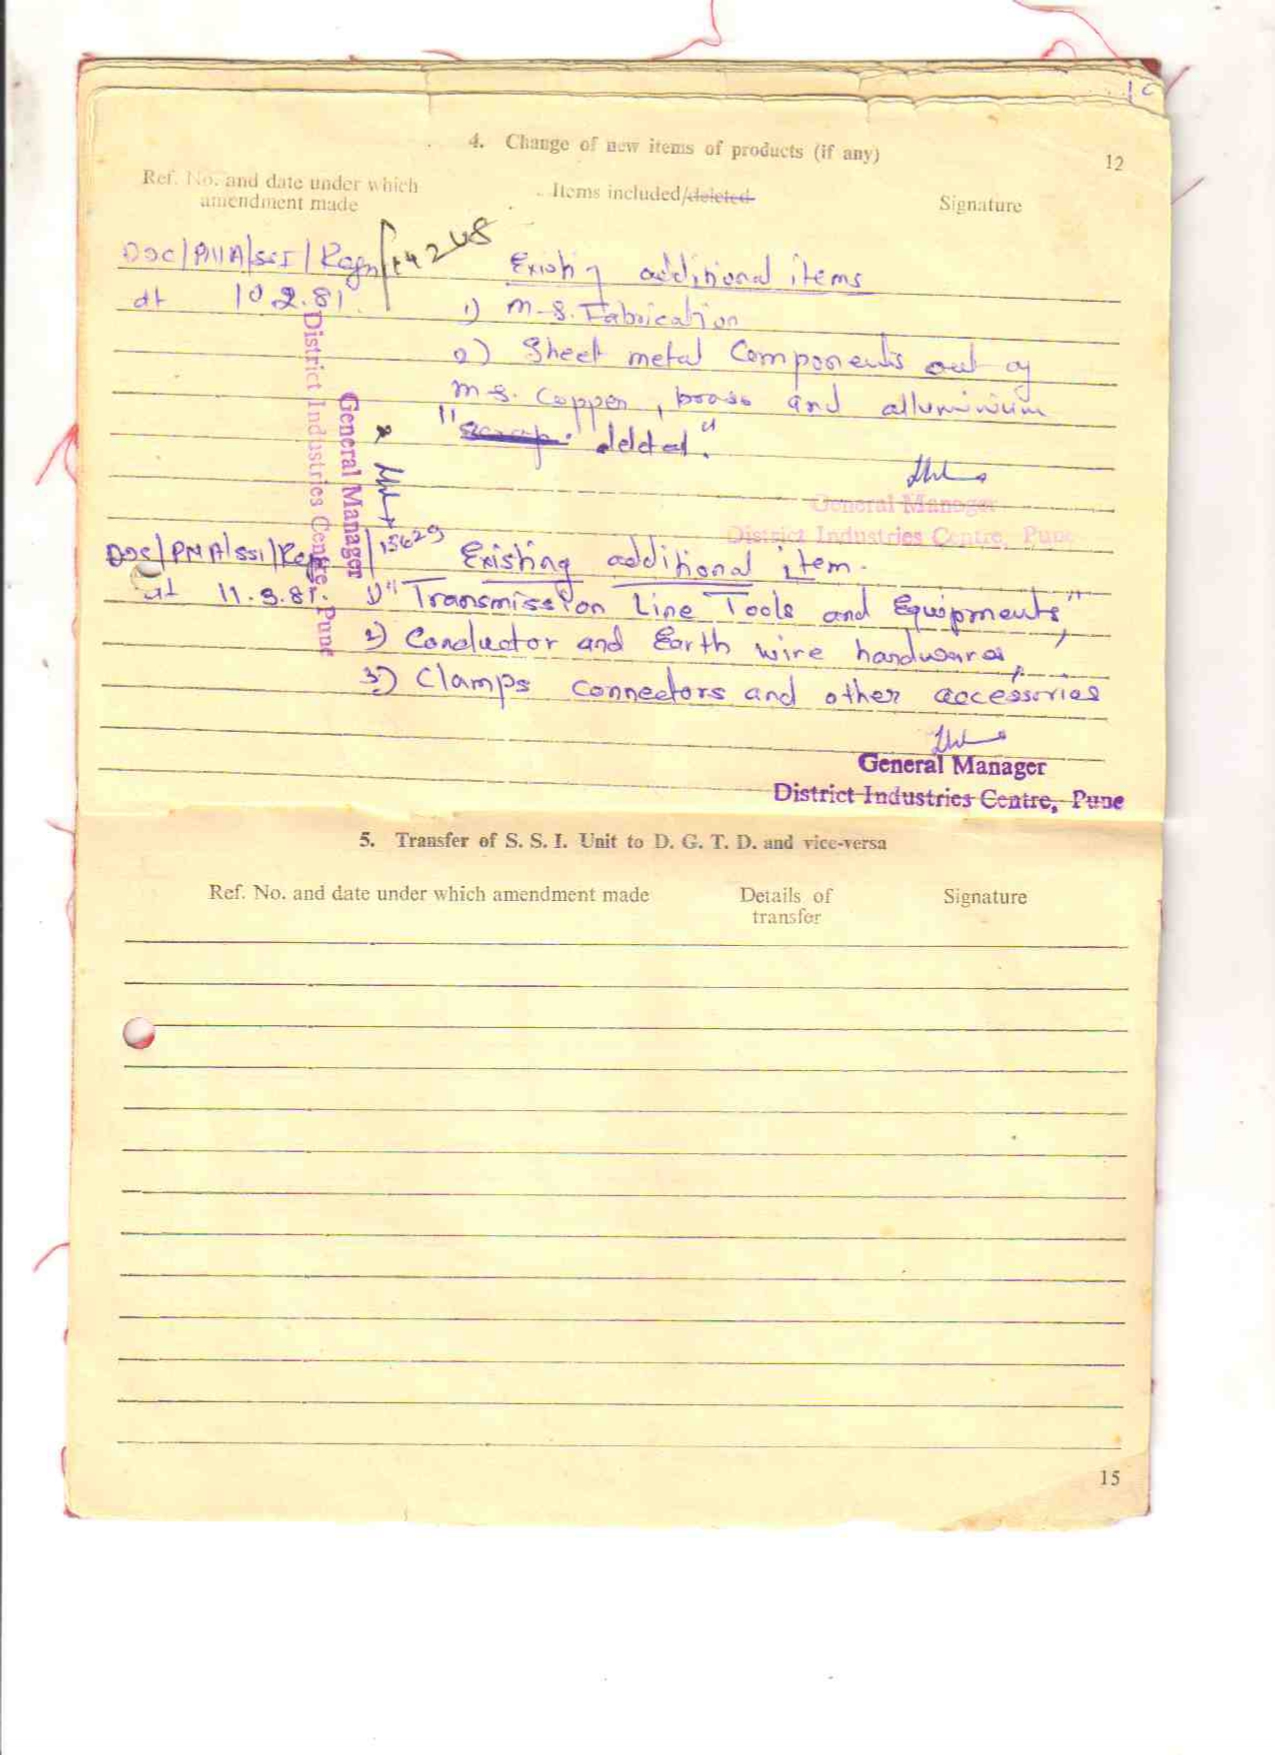 4. Change of new items of products (if any)
12
Ref. No. and date under which amendment made
Items included/deleted
Signature
DOC/PNA/SSI/Regn/
dt 10.2.81.
Existing additional items
1) M.S. Fabrication
2) Sheet metal Components out of
M.S. Copper, brass and alluminium
"Scrap" deleted".
General Manager
District Industries Centre, Pune
General Manager
District Industries Centre, Pune
DOC/PNA/SSI/Regn/15629
dt 11.3.81.
Existing additional item.
1) "Transmission Line Tools and Equipments",
2) Conductor and Earth wire hardwares,
3) Clamps connectors and other accessories
General Manager
District Industries Centre, Pune
5. Transfer of S. S. I. Unit to D. G. T. D. and vice-versa
Ref. No. and date under which amendment made
Details of transfer
Signature
15